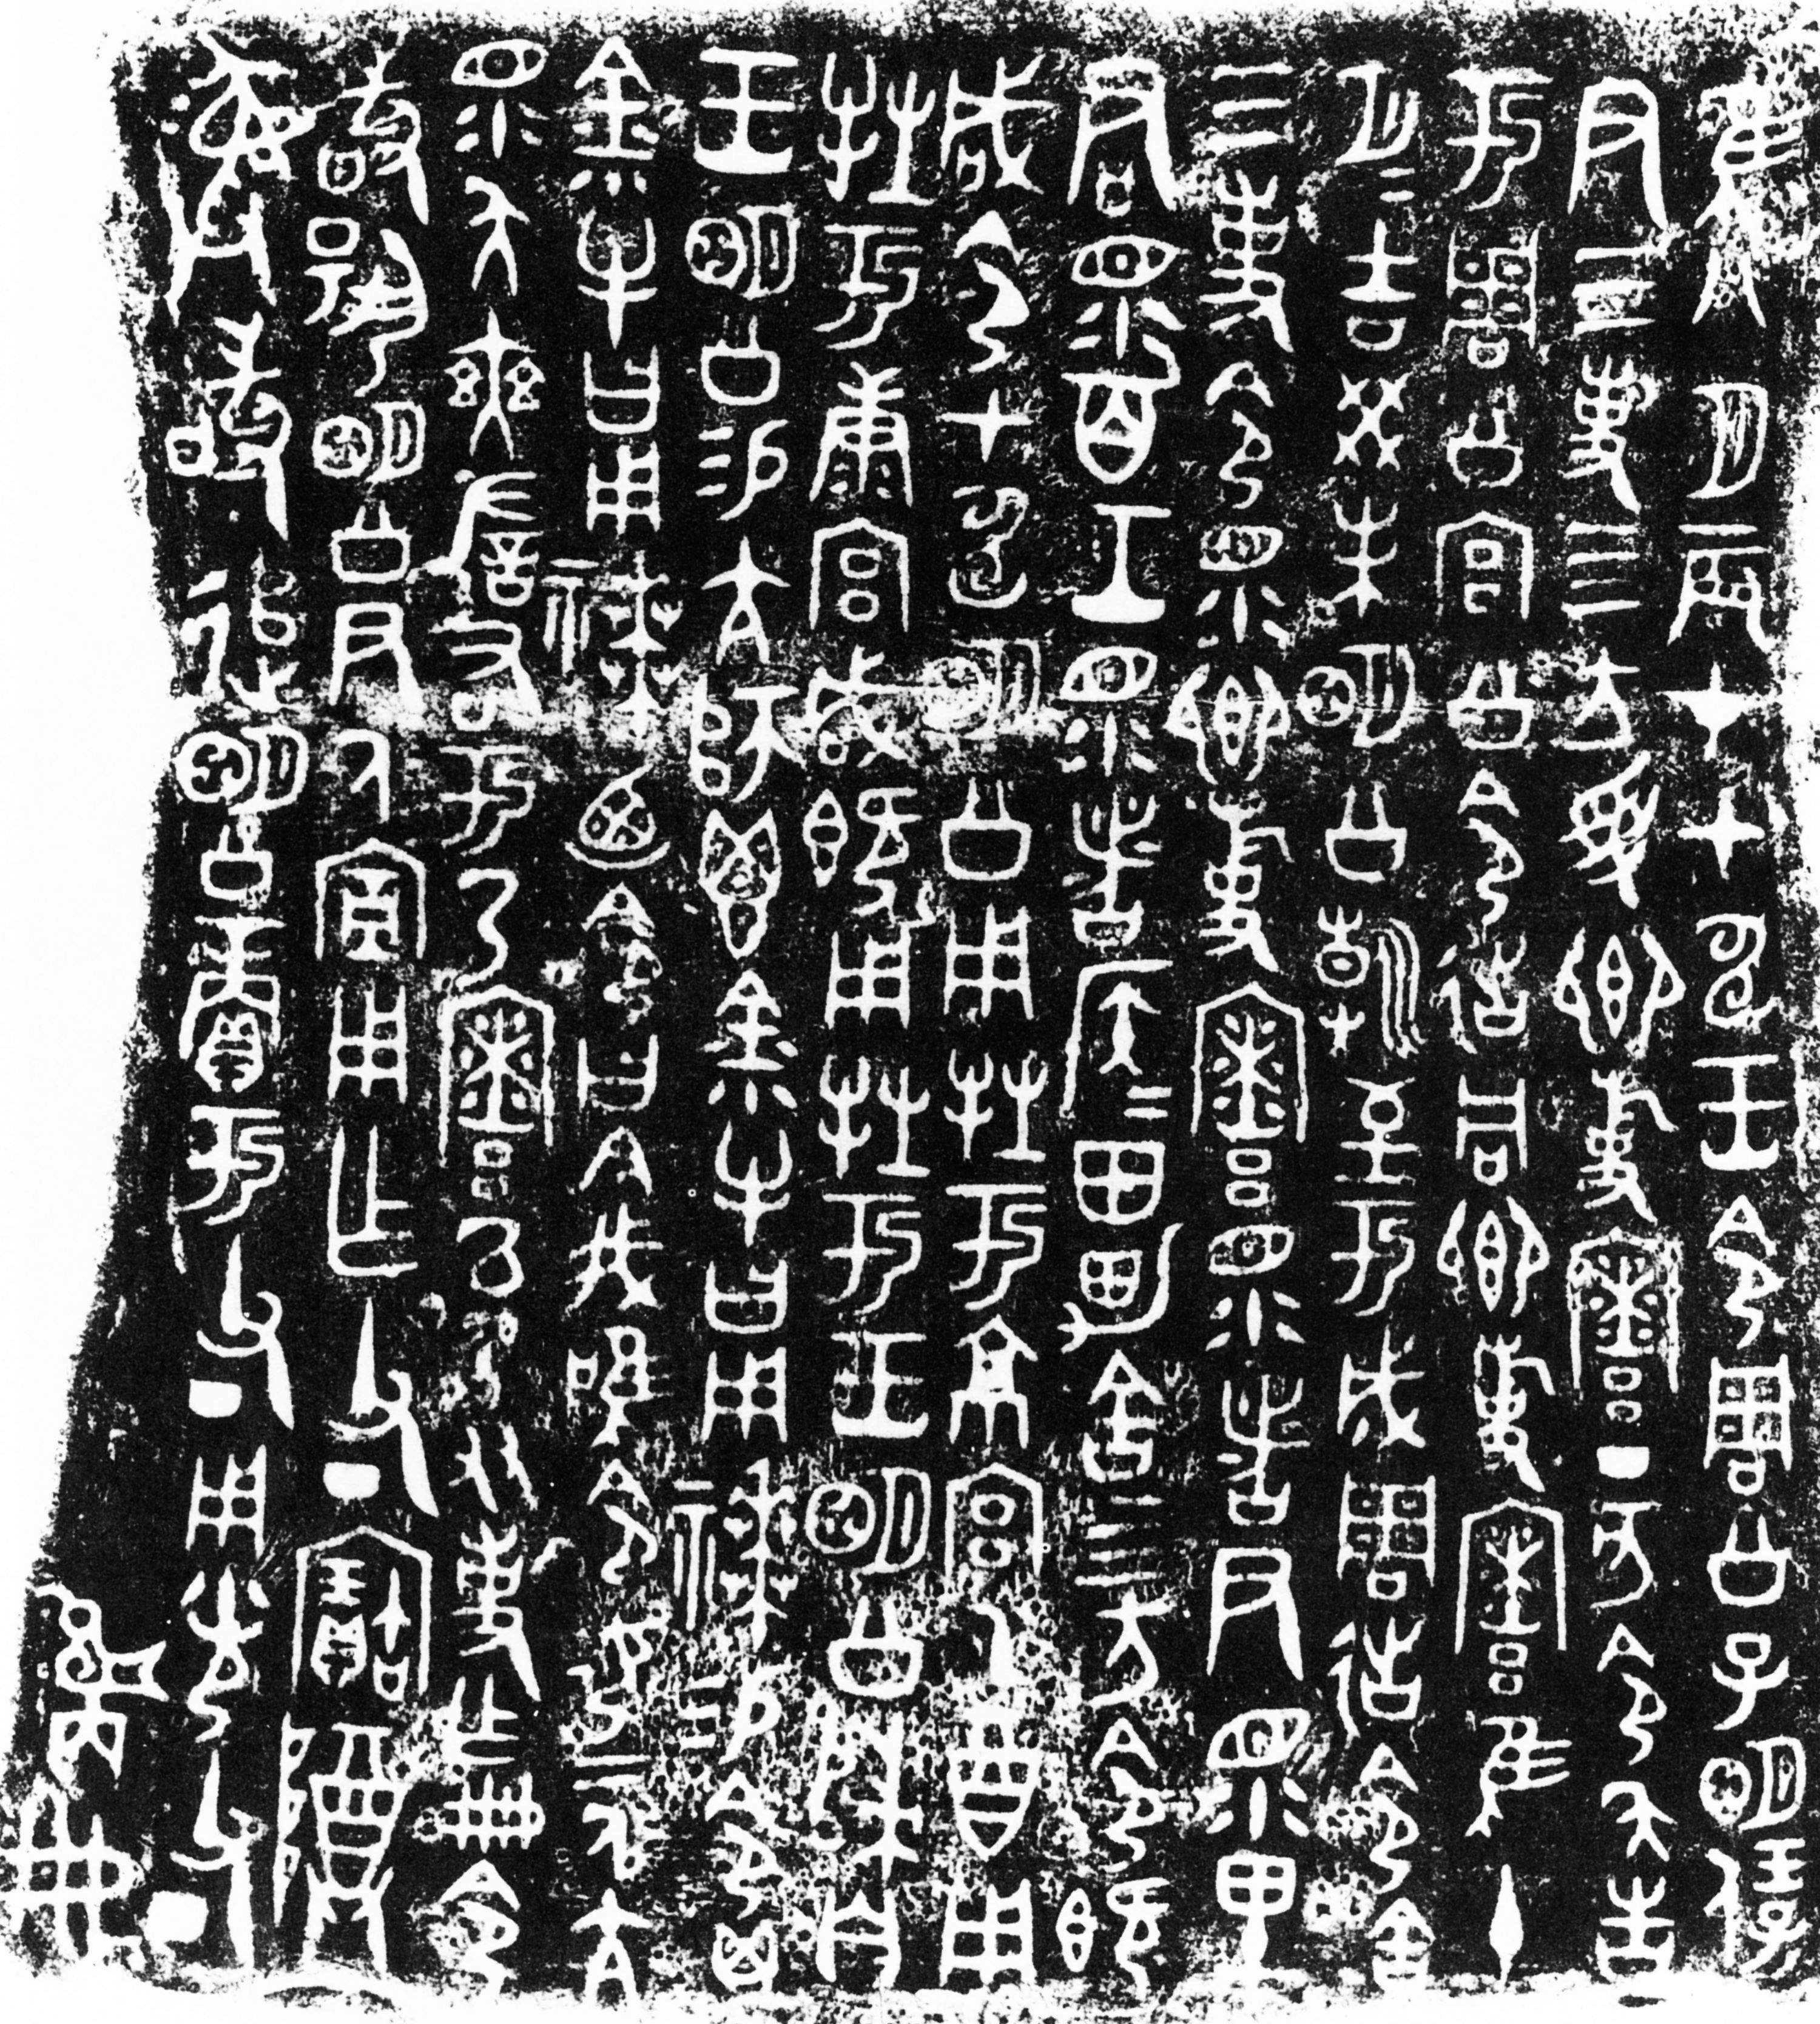 隹八月辰才甲申王令周公子明保
尹三事四方受卿事寮丁亥令夨告
于周公宮公令𢓊同卿事寮隹十
月=吉癸未明公朝至于成周𢓊令舍
三事令眔卿事寮眔者尹眔里
君眔百工眔者侯=田男舍四方令既
咸令甲申明公用牲于京宮乙酉用
牲于康宮咸既用牲于王明公歸自
王明公易亢師鬯金小牛曰用𥛚易令鬯
金小牛曰用𥛚迺令曰今我唯令女二人亢
眔夨奭左右于乃寮以乃友事乍冊令
敢揚明公尹氒宦用乍父丁寶尊
彝敢追明公賞于父丁用光父丁
冊